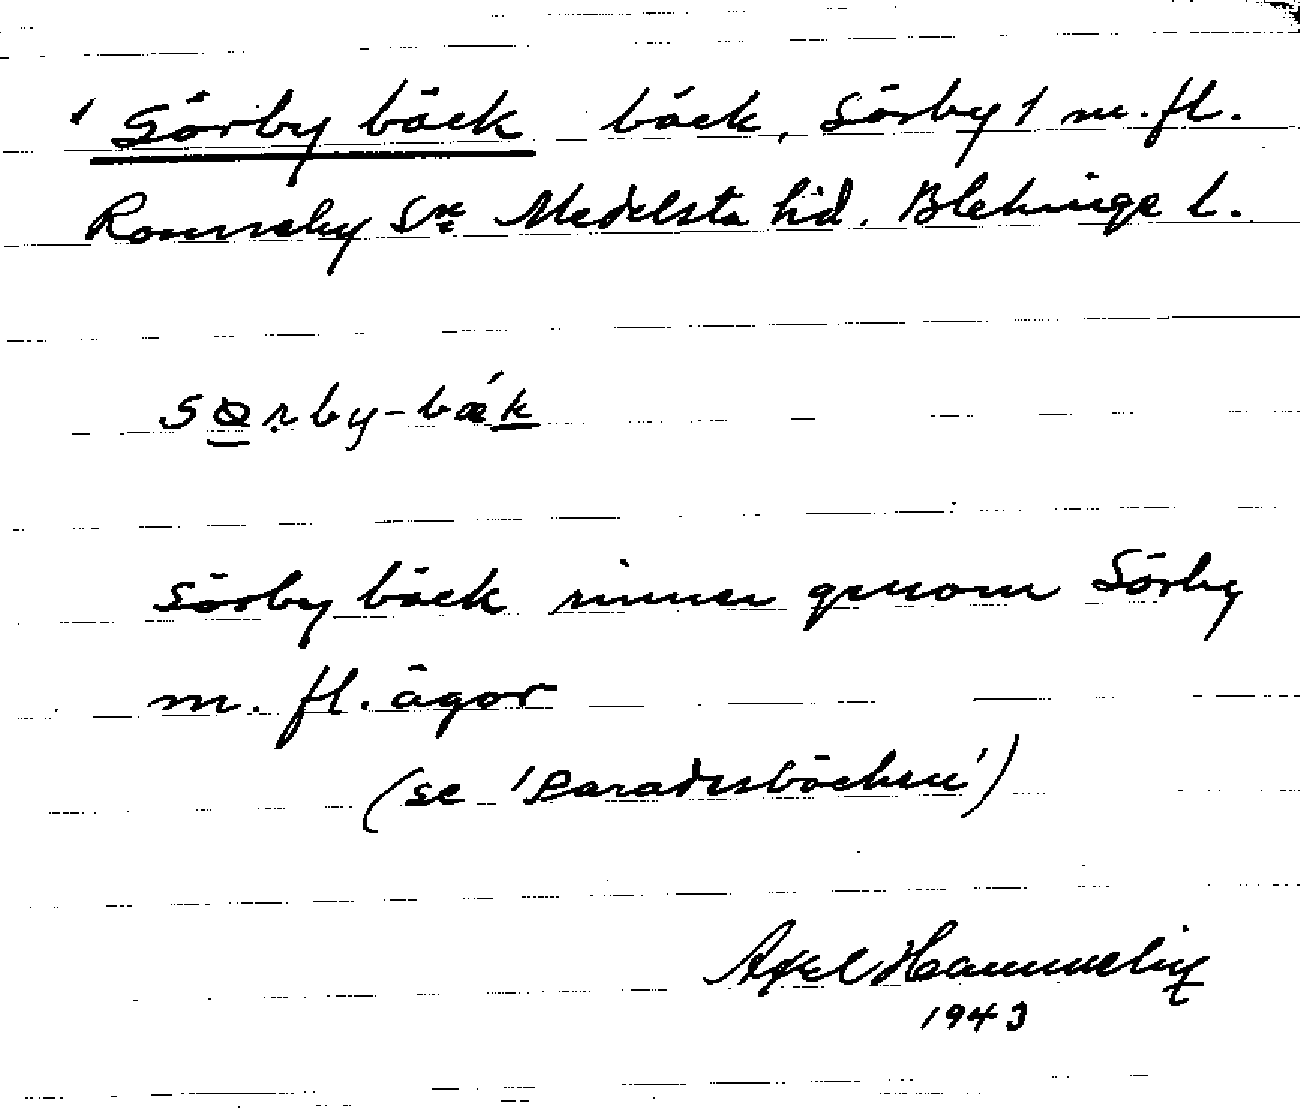 ' Sörby bäck bäck, Sörby 1 m.fl.
Ronneby Sn Medelsta hd. Blekinge l.
sørby-bæ´k
Sörby bäck rinner genom Sörby
m. fl. ägor
(se 'Paradisbäcken')
Axel
1943